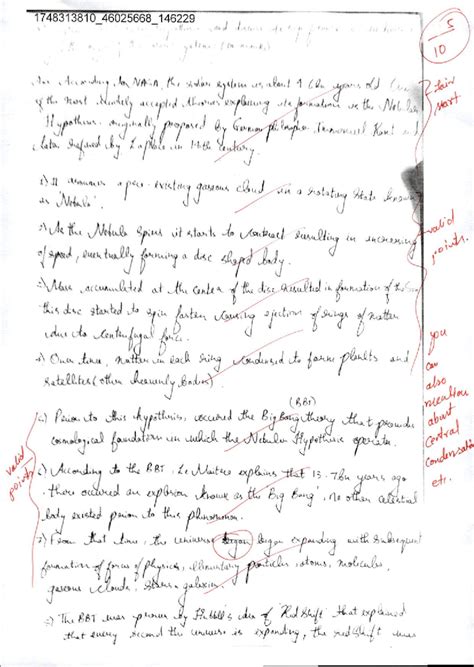 1748313810_46025668_146229
5
10
Ans. According to NASA, the solar system is about 4.6 bn years old. One
of the most widely accepted theories explaining its formation is the Nebular
Hypothesis originally proposed by German philosopher Immanuel Kant and
later refined by Laplace in 19th century.
fair
start
1) It assumes a pre-existing gaseous cloud in a rotatary state known
as 'Nebula'.
2) As the Nebula spins it starts to contract resulting in increasing
of speed, eventually forming a disc shaped body.
valid
points.
3) Mass accumulated at the center of the disc resulted in formation of the Sun
this disc started to spin faster causing ejection of rings of matter
due to centrifugal force.
Over time, matter in each ring condensed to form planets and
satellites (other heavenly bodies).
you
can
also
mention
about
Central
Condensation
etc.
(BBT)
Prior to this hypothesis, occured the Big Bang theory that provide
cosmological foundation in which the Nebular Hypothesis operates.
valid
points
6) According to the BBT, Le Maitre explains that 13.7bn years ago
there occured an explosion known as the 'Big Bang', no other celestial
body existed prior to this phenomenon.
7) From that time, the universe began began expanding with subsequent
formation of force of physics, elementary particles, atoms, molecules,
gaseous clouds, stars & galaxies.
The BBT was proven by Hubble's idea of 'Red Shift' that explained
that every second the universe is expanding, the red shift was